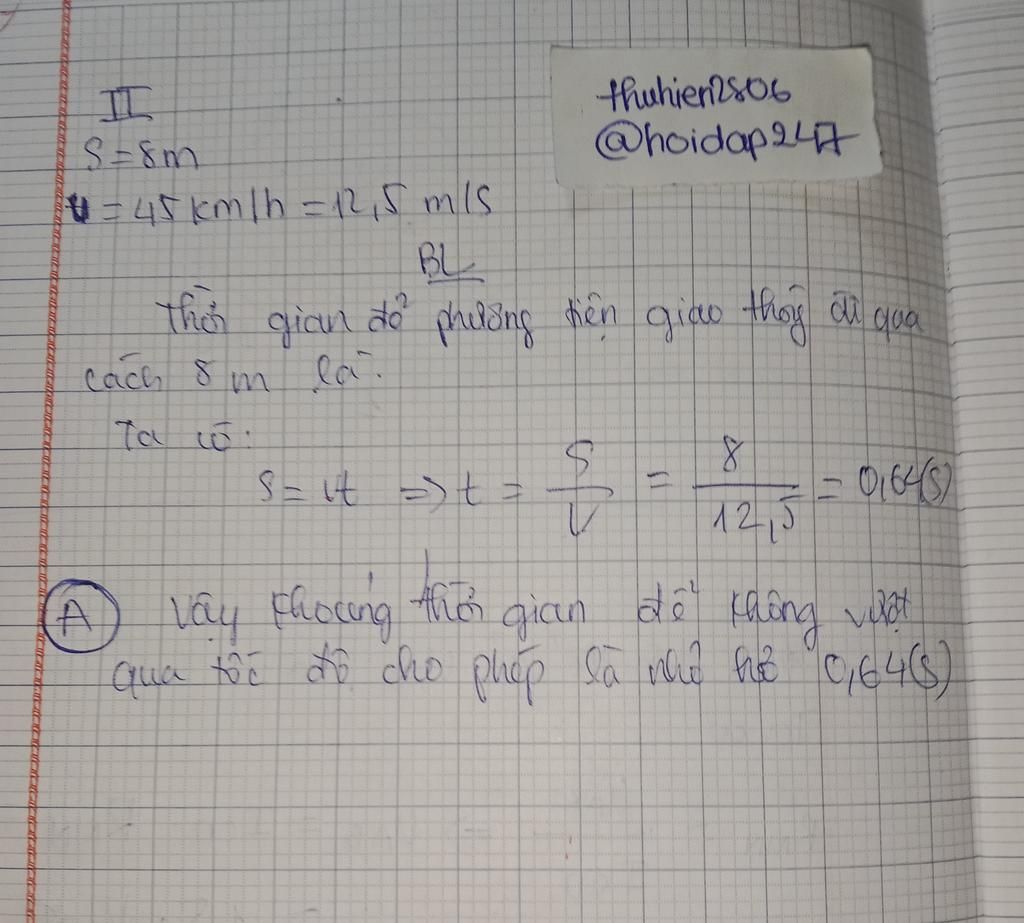 thuhien2806
@hoidap247
II
S = 8m
v = 45 km/h = 12,5 m/s
BL
Thời gian để phương tiện giao thông đi qua
cách 8 m là:
Ta có:
S = vt => t = S/V = 8/12,5 = 0,64(s)
A Vậy khoảng thời gian để không vượt
qua tốc độ cho phép là nhỏ 0,64(s)